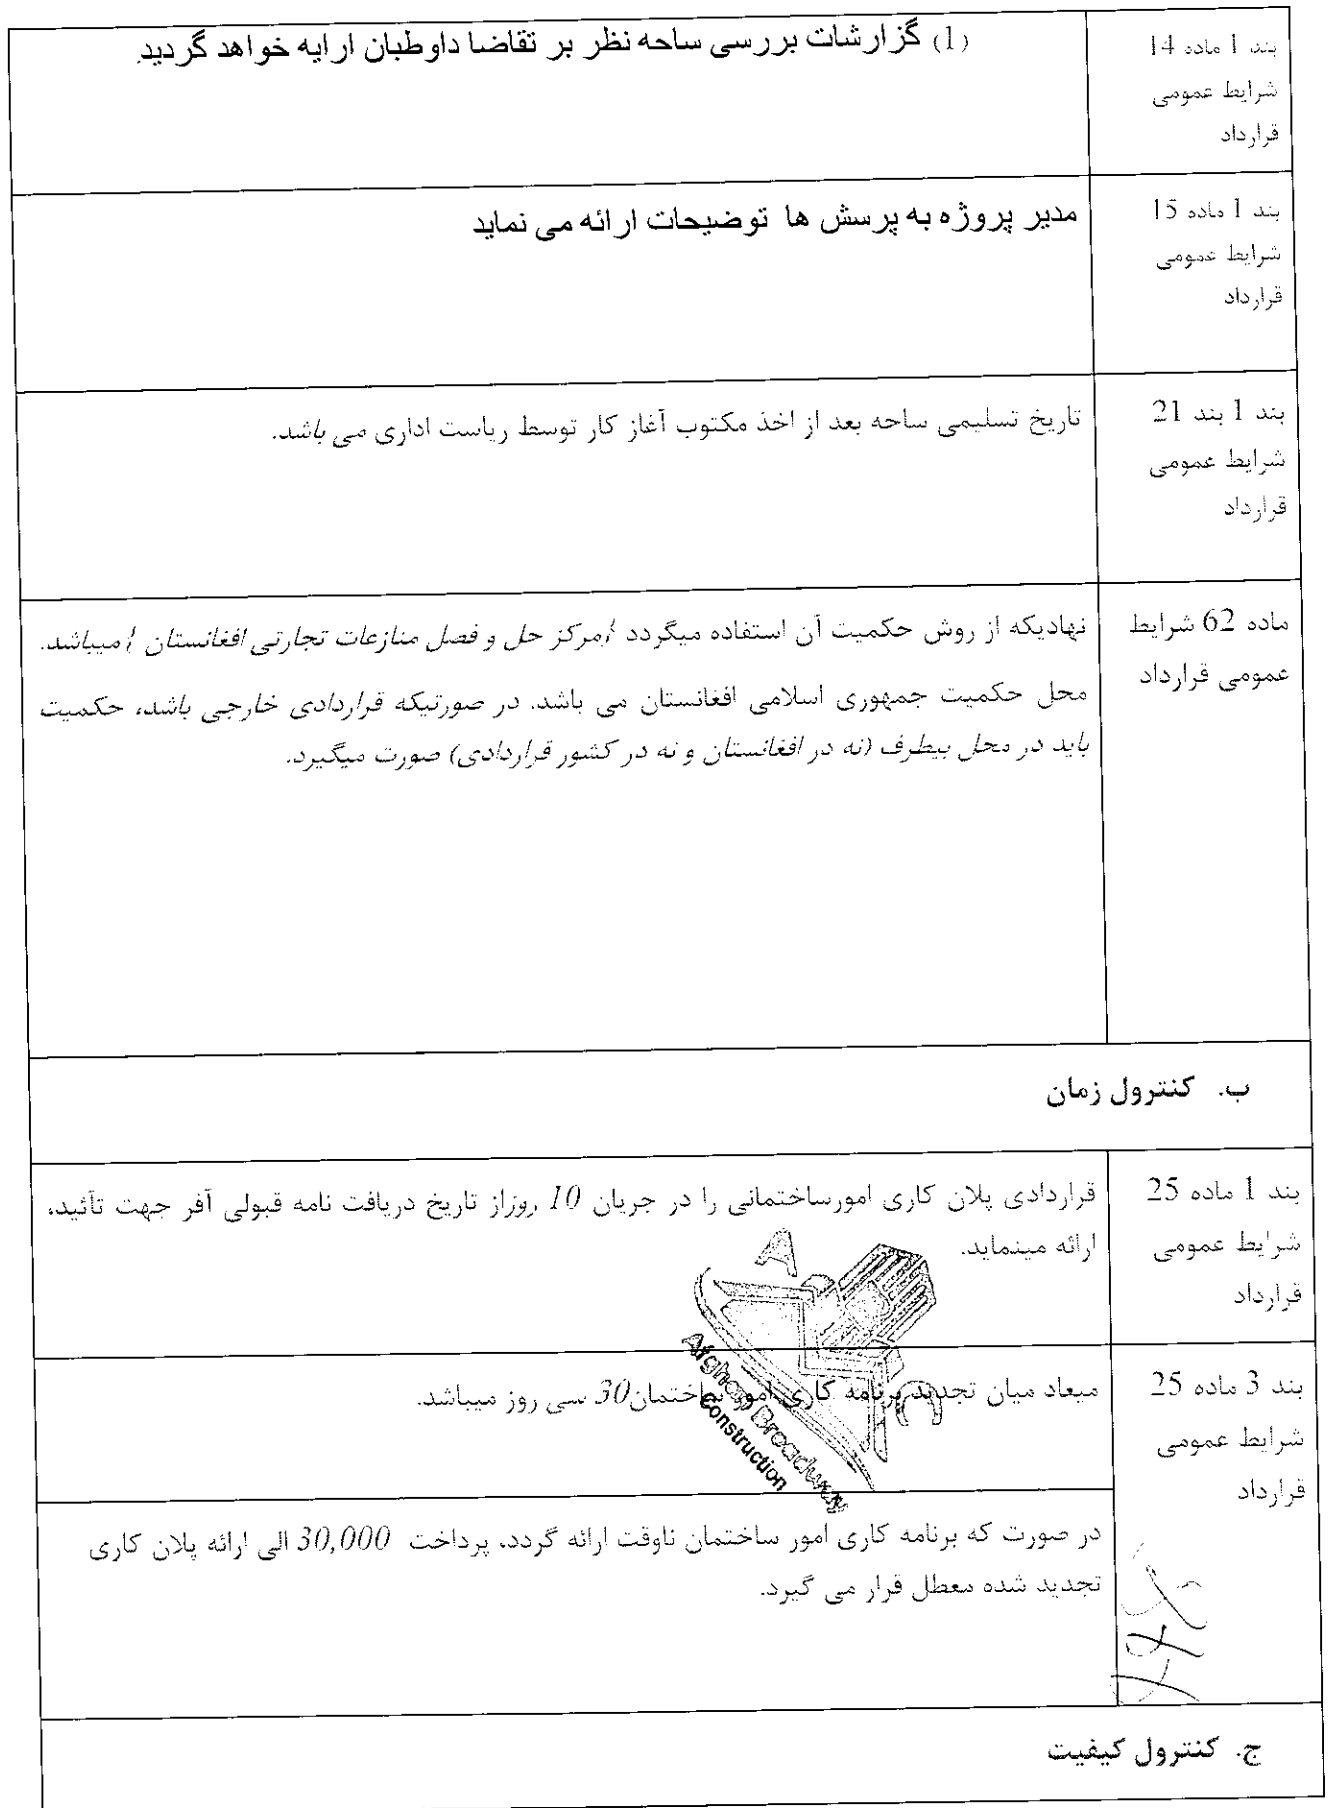 بند 1 ماده 14
شرایط عمومی
قرارداد
(1) گزارشات بررسی ساحه نظر بر تقاضا داوطبان ارایه خواهد گردید.
بند 1 ماده 15
شرایط عمومی
قرارداد
مدیر پروژه به پرسش ها توضیحات ارائه می نماید
بند 1 بند 21
شرایط عمومی
قرارداد
تاریخ تسلیمی ساحه بعد از اخذ مکتوب آغاز کار توسط ریاست اداری می باشد.
ماده 62 شرایط
عمومی قرارداد
نهادیکه از روش حکمیت آن استفاده میگردد {مرکز حل و فصل منازعات تجارتی افغانستان } میباشد.
محل حکمیت جمهوری اسلامی افغانستان می باشد. در صورتیکه قراردادی خارجی باشد، حکمیت
باید در محل بیطرف (نه در افغانستان و نه در کشور قراردادی) صورت میگیرد.
ب. کنترول زمان
بند 1 ماده 25
شرایط عمومی
قرارداد
قراردادی پلان کاری امورساختمانی را در جریان 10 روزاز تاریخ دریافت نامه قبولی آفر جهت تائید،
ارائه مینماید.
بند 3 ماده 25
شرایط عمومی
قرارداد
میعاد میان تجدید برنامه کاری امور ساختمان 30 سی روز میباشد.
در صورت که برنامه کاری امور ساختمان ناوقت ارائه گردد، پرداخت 30,000 الی ارائه پلان کاری
تجدید شده معطل قرار می گیرد.
A
C
Afghan Broadway
Construction
ج. کنترول کیفیت